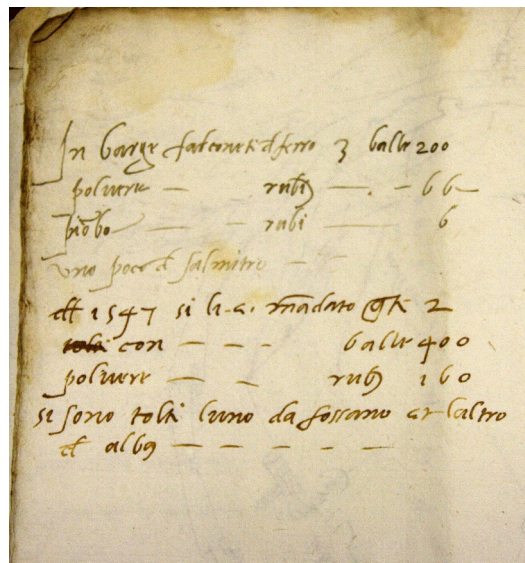 In barge falconeti d ferro 3 balle 200
polvere — rubi — . - 66
piōbo — - rubi — 6
uno poco d salmitro - -
d 1547 si li a. mādato 2
con - - - balle 400
polvere — - rubi 160
si sono tolti luno da fossano et laltro
d alba - - - - -